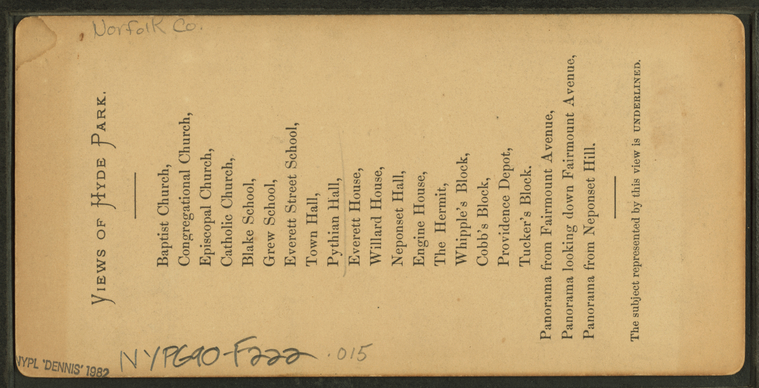 Norfolk Co.
VIEWS OF HYDE PARK.
Baptist Church,
Congregational Church,
Episcopal Church,
Catholic Church,
Blake School,
Grew School,
Everett Street School,
Town Hall,
Pythian Hall,
Everett House,
Willard House,
Neponset Hall,
Engine House,
The Hermit,
Whipple's Block,
Cobb's Block,
Providence Depot,
Tucker's Block.
Panorama from Fairmount Avenue,
Panorama looking down Fairmount Avenue,
Panorama from Neponset Hill.
The subject represented by this view is UNDERLINED.
NYPG90-F222 .015
NYPL 'DENNIS' 1982